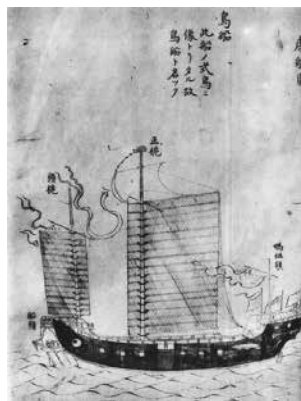 鳥船
此船ノ式鳥ニ
像トリタル故
鳥船ト名ツク
正桅
頭桅
船頭